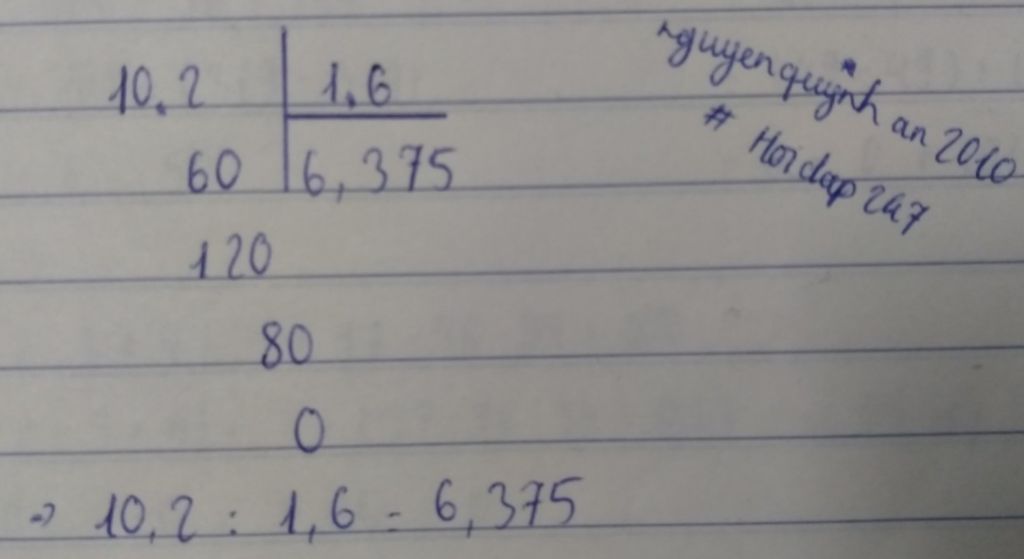 10,2 | 1,6
60 | 6,375
120
80
0
→ 10,2 : 1,6 = 6,375
nguyenquỳnh an 2010
# Hoidap 247